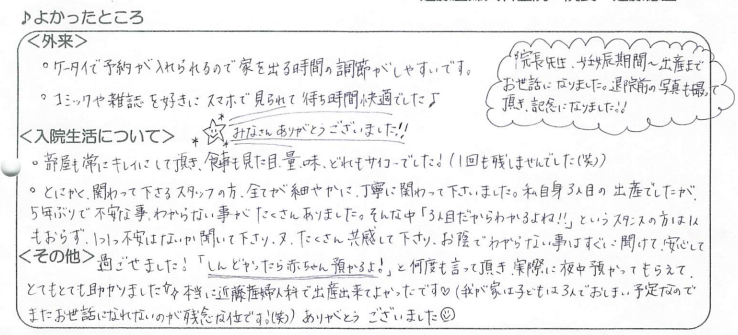 ♪よかったところ
<外来>
・ケータイで予約が入れられるので家を出る時間の調節がしやすいです。
・コミックや雑誌を好きにスマホで見られて待ち時間快適でした♪
院長先生、妊娠期間～出産まで
お世話になりました。退院前の写真も撮って
頂き、記念になりました!!
☆みなさんありがとうございました!!
<入院生活について>
・部屋も常にキレイにして頂き、食事も見た目、量、味、どれもサイコーでした!(1回も残しませんでした(笑))
・とにかく、関わって下さるスタッフの方、全てが細やかに、丁寧に関わって下さいました。私自身3人目の出産でしたが、
5年ぶりで不安な事、わからない事がたくさんありました。そんな中「3人目だからわかるよね!!」というスタンスの方は1人
もおらず、1つ1つ不安はないか聞いて下さり、又、たくさん共感して下さり、お陰でわからない事はすぐに聞けて、安心して
<その他>
過ごせました!「しんどかったら赤ちゃん預かるよ!」と何度も言って頂き、実際に夜中預かってもらえて、
とてもとても助かりました☆本当に近藤産婦人科で出産出来てよかったです♡(我が家は子どもは3人でおしまい予定なので
またお世話になれないのが残念な位です!(笑))ありがとうございました☺